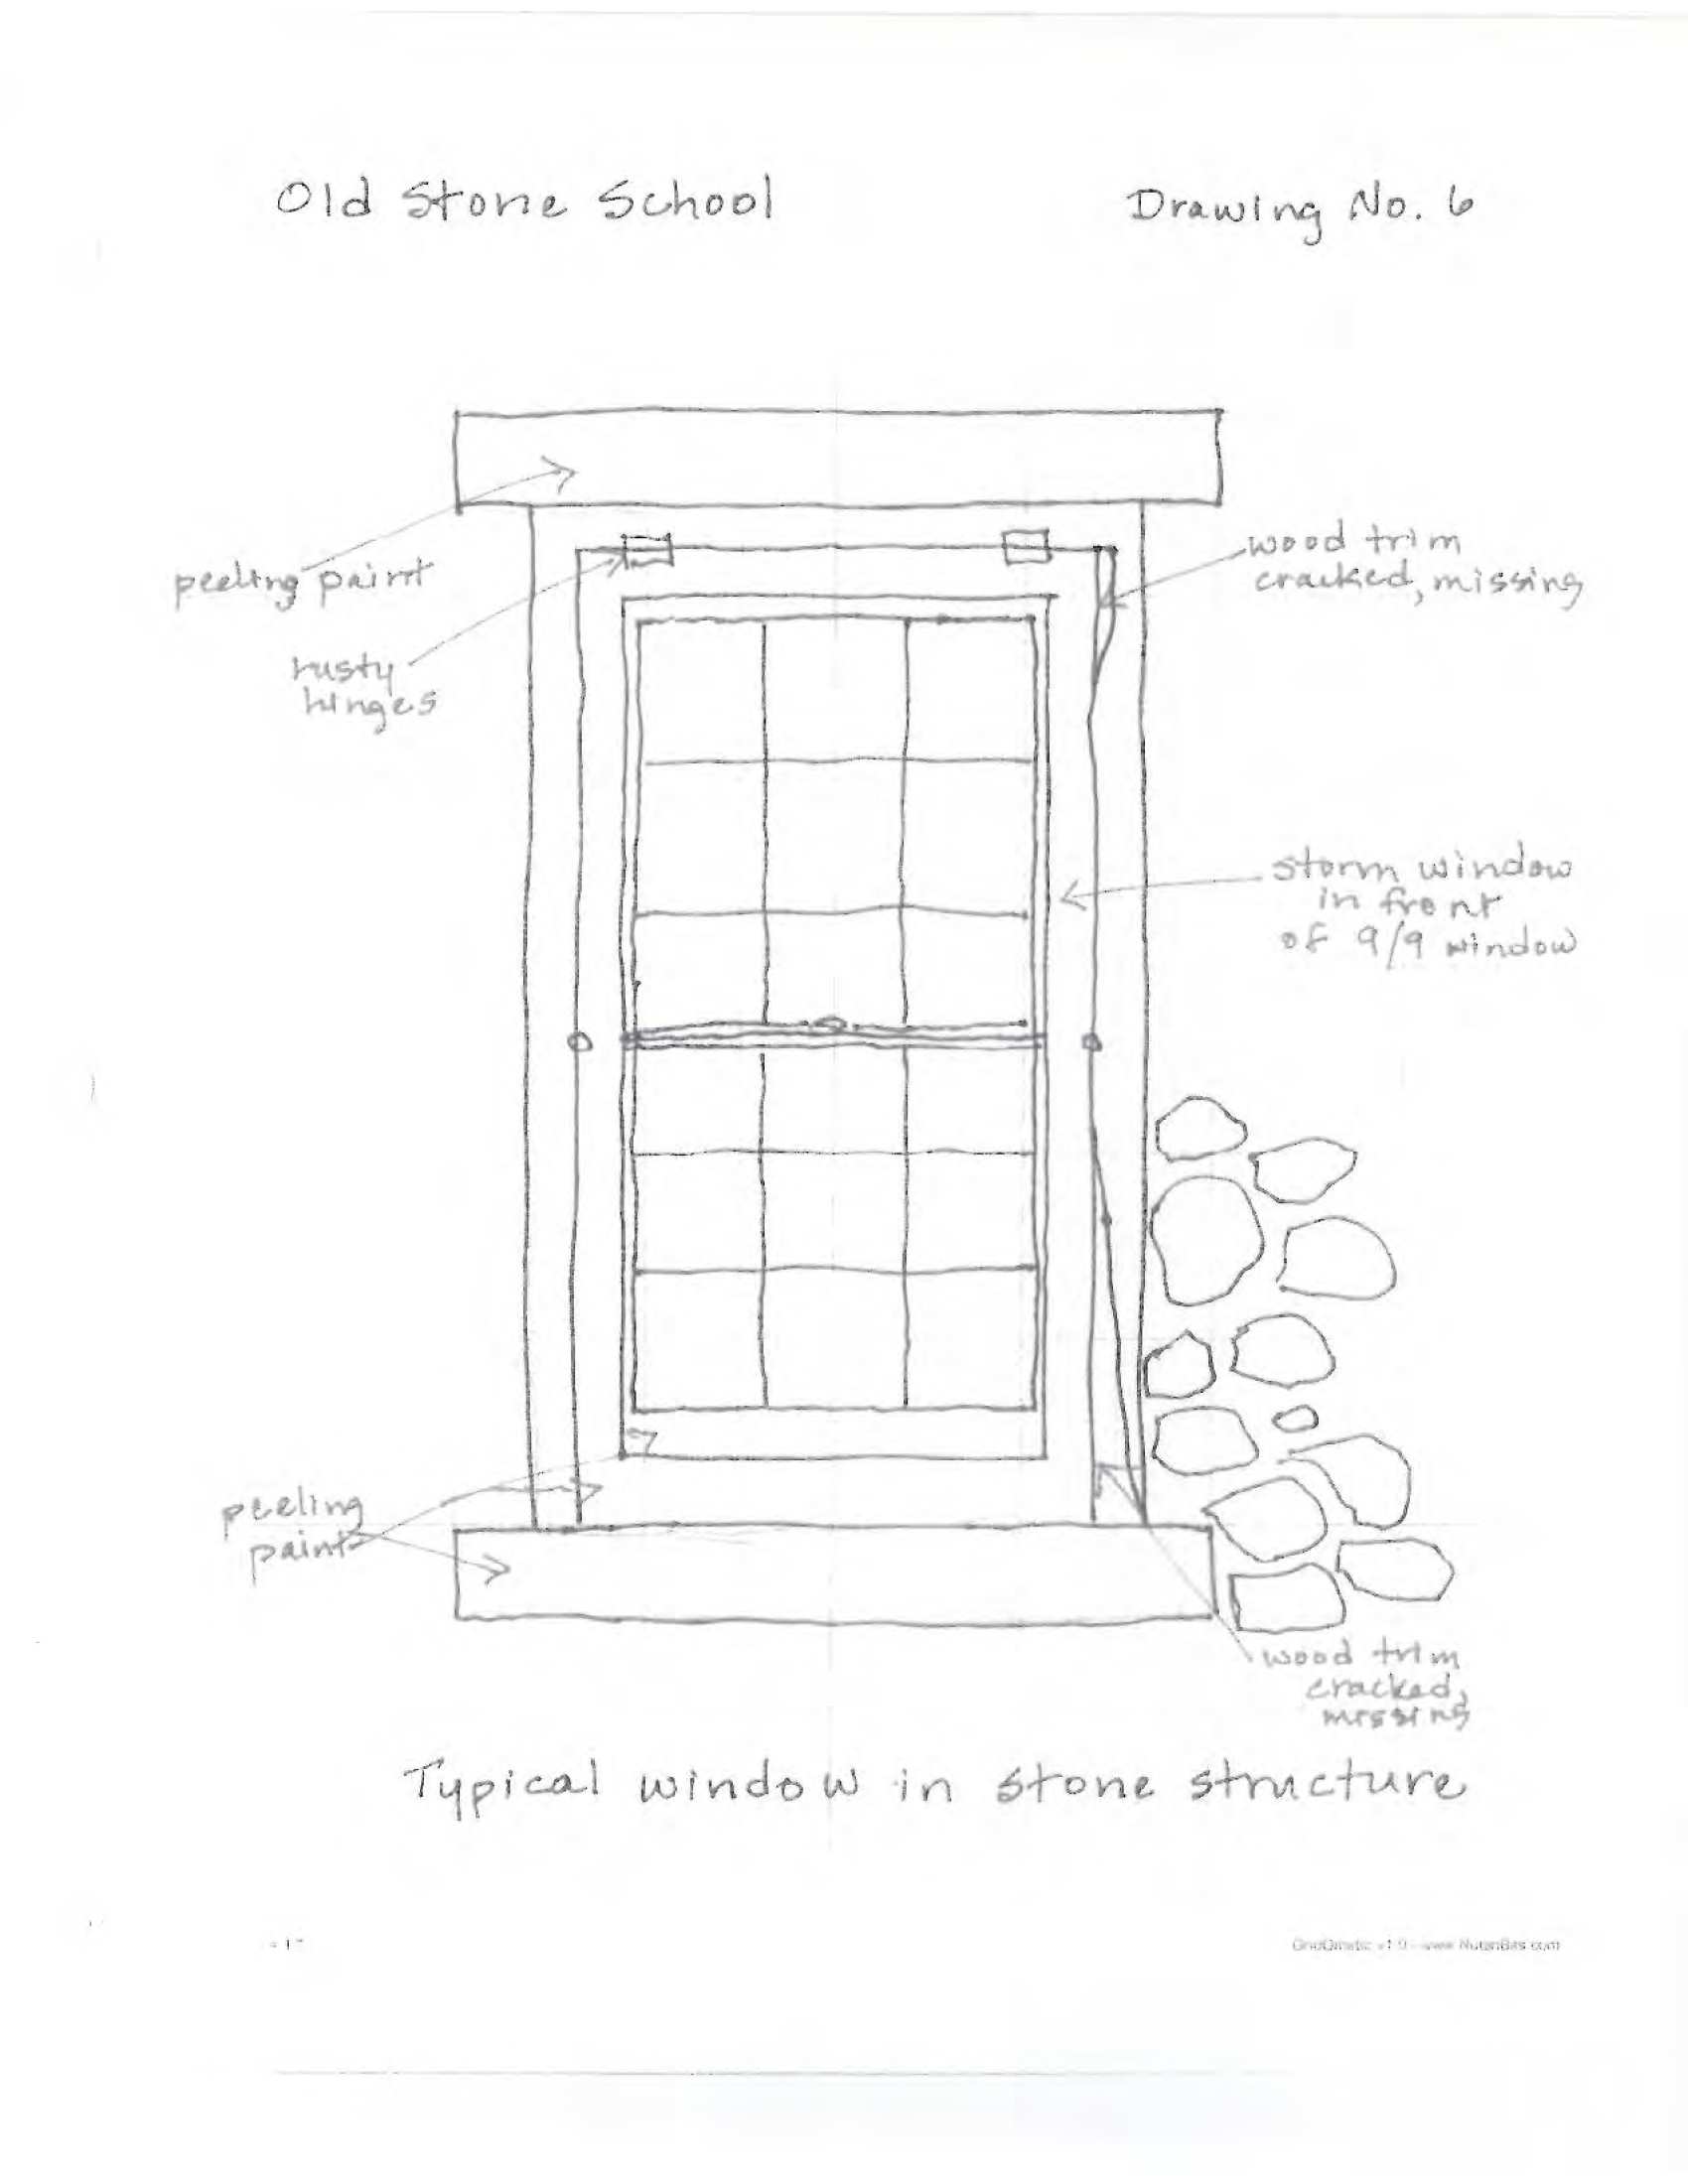 Old Stone School
Drawing No. 6
peeling paint
rusty
hinges
wood trim
cracked, missing
storm window
in front
of 9/9 window
peeling
paint
wood trim
cracked,
missing
Typical window in stone structure